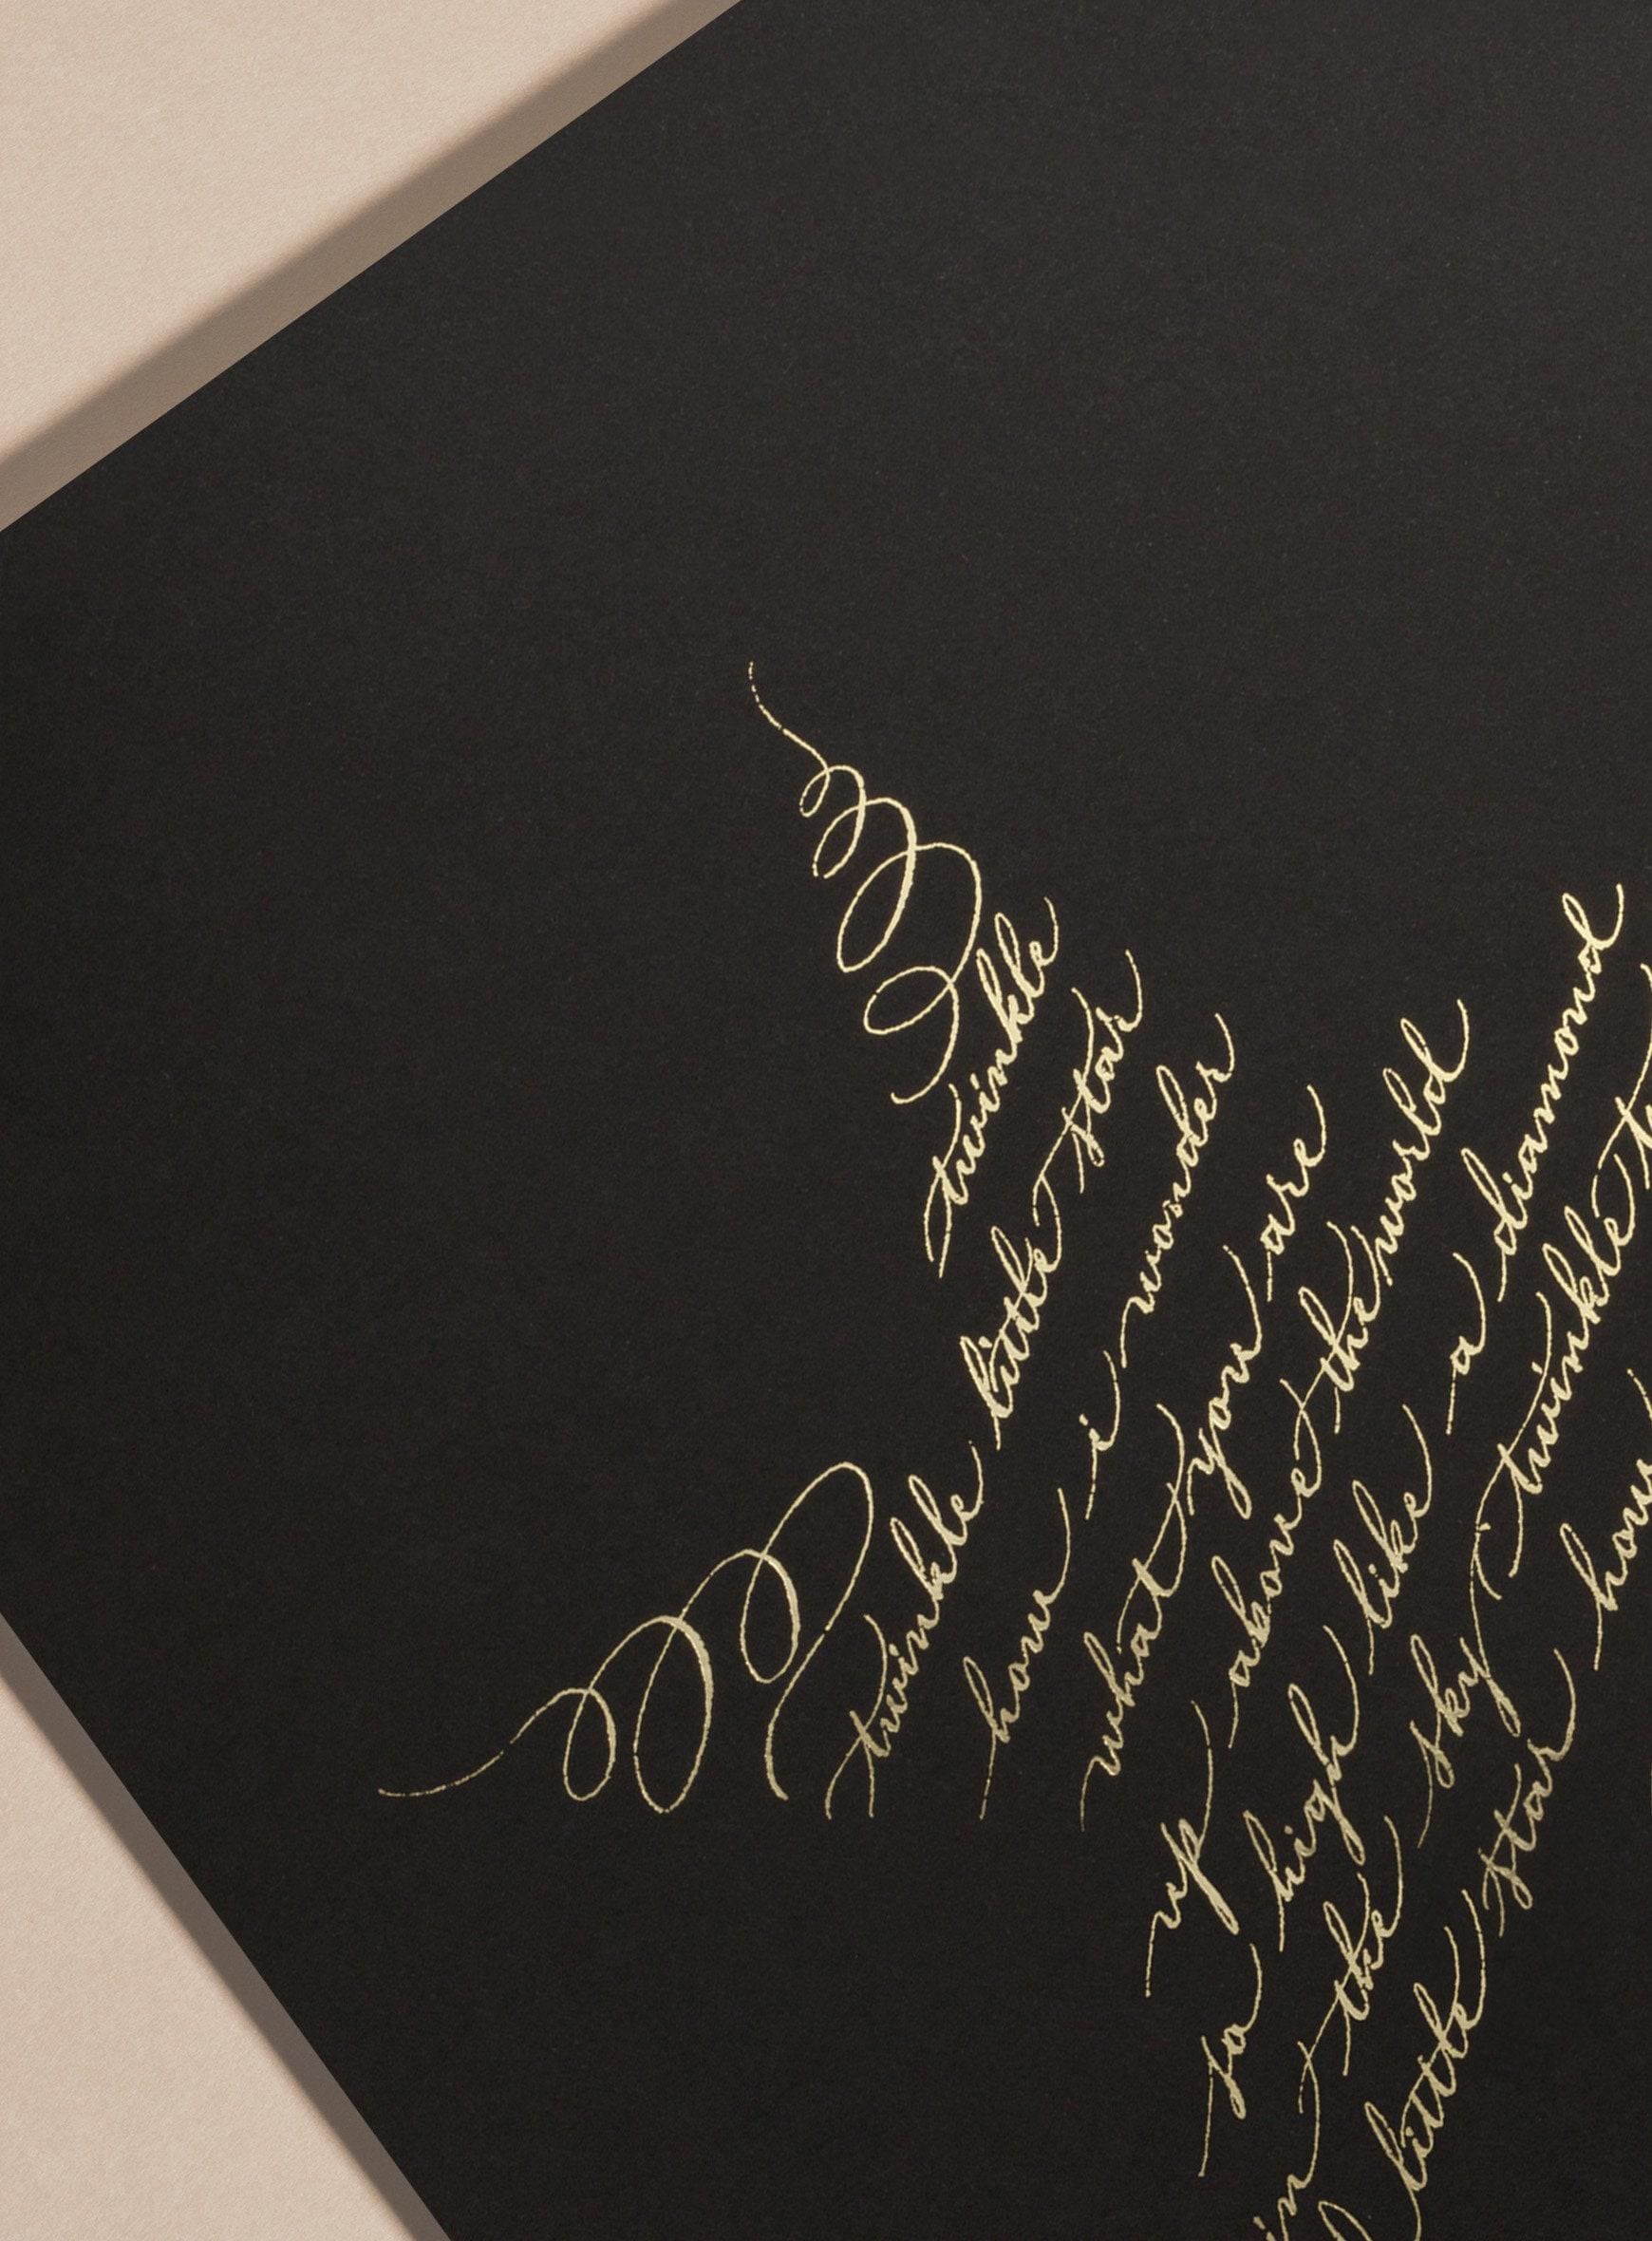 twinkle
twinkle little star
how i wonder
what you are
up above the world
so high like a diamond
in the sky twinkle
little star how